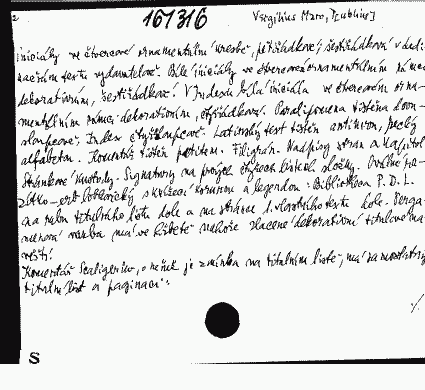 2 161316 Vergilius Maro, [Publius]
iniciály ve čtvercové ornamentální kresbě, pětiřádkové, šestiřádková v dedi-
kačním textu vydavatelově. Bílé iniciály ve čtvercovém ornamentálním rámci
dekorativním, šestiřádkové. V Indexu bílá iniciála ve čtvercovém orna-
mentálním rámci dekorativním, čtyřřádková. Paralipomena tištěna dvou-
sloupcově, Index čtyřsloupcově. Latinský text tištěn antikvou, řecký
alfabetou. Komentář tištěn petitem. Filigrán. Nadpisy stran a kapitol
Stránkové kustody. Signatury na prvých listech složky. Oválné ra-
zítko – erb Lobkovický s knížecí korunou a legendou: Bibliotheca P. D. L.
na rubu titulního listu dole a na stránce 1. vlastního textu dole. Perga-
menová vazba má ve hřbetě nahoře zlacené dekorativní titulové ná-
Komentář Scaligerův, o němž je zmínka na titulním listě, má samostatný
titulní list a paginaci.
./.
S